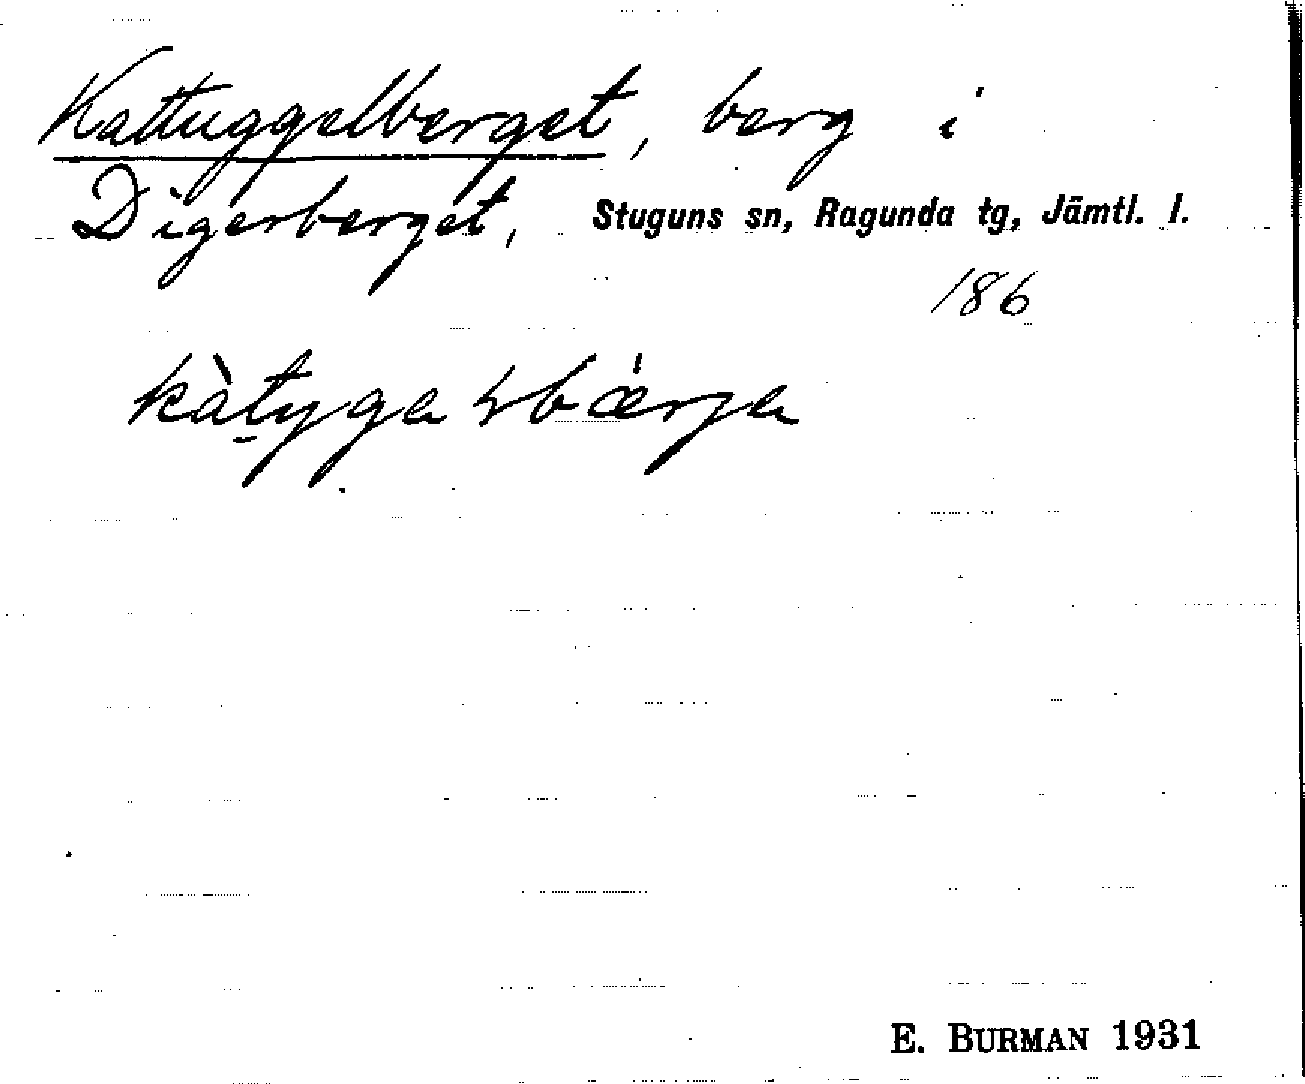 Kattuggelberget, berg i
Digerberget, Stuguns sn, Ragunda tg, Jämtl. l.
186
kàt̠ygaɽbǽrja
E. BURMAN 1931